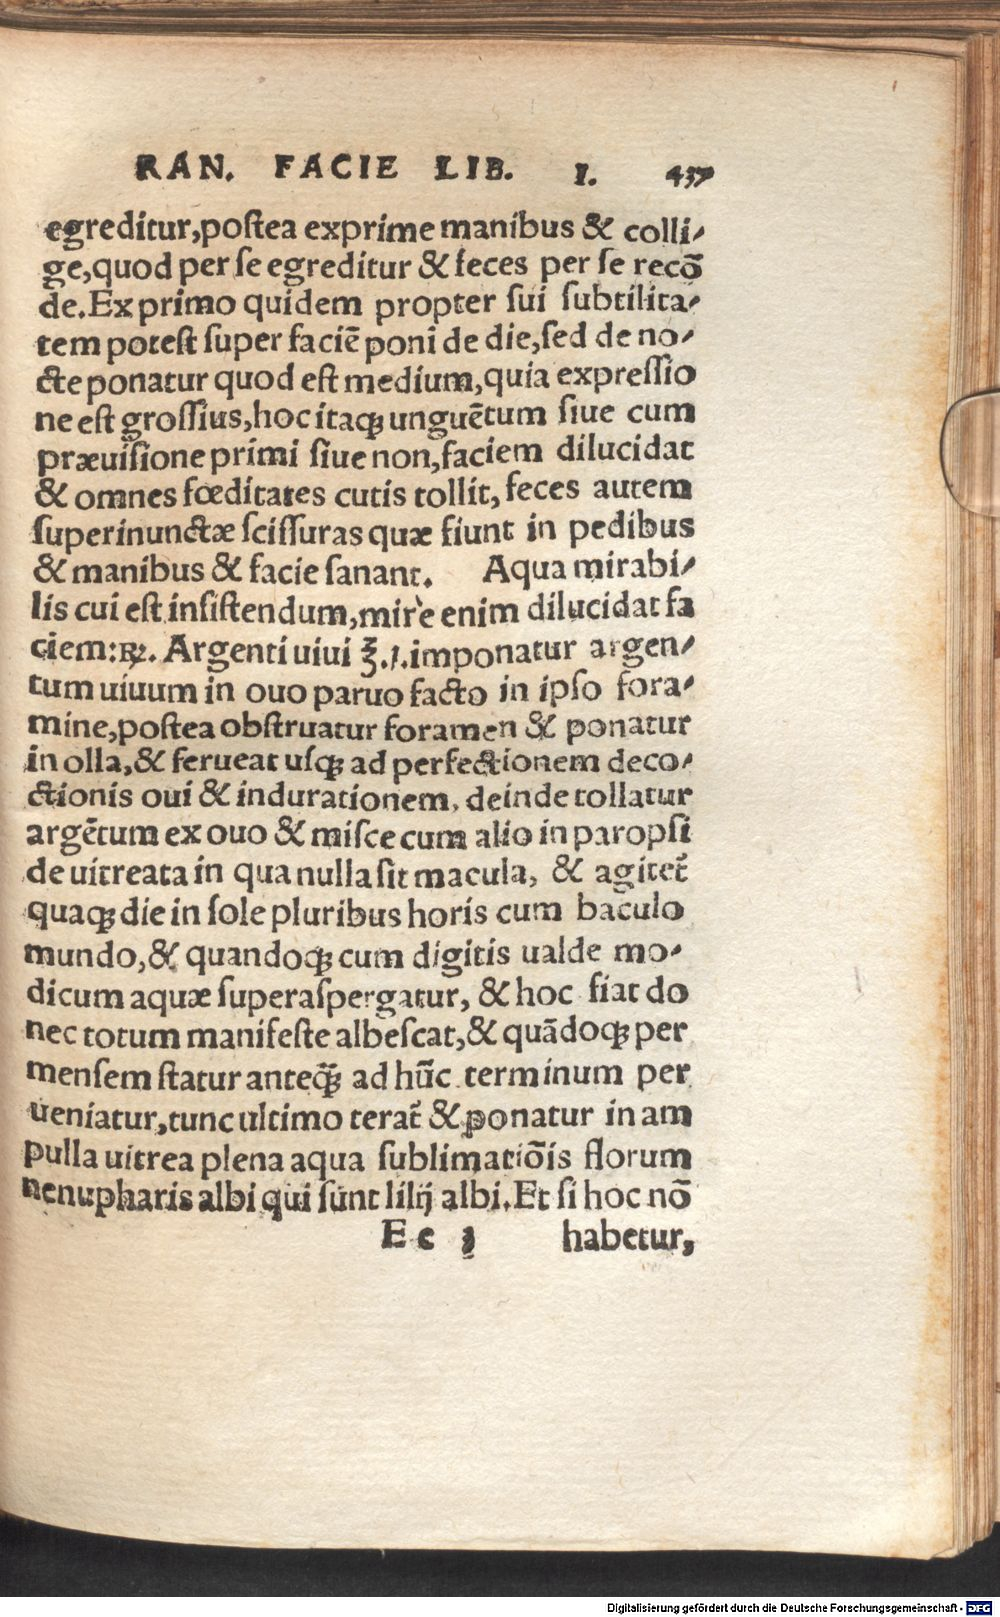 RAN. FACIE LIB. I. 437
egreditur,postea exprime manibus & colli-
ge,quod per se egreditur & feces per se recõ
de.Ex primo quidem propter sui subtilita-
tem potest super faciẽ poni de die,sed de no-
cte ponatur quod est medium,quia expressio
ne est grossius,hoc itaqꝫ unguẽtum siue cum
præuisione primi siue non,faciem dilucidat
& omnes fœditates cutis tollit, feces autem
superinunctæ scissuras quæ fiunt in pedibus
& manibus & facie sanant. Aqua mirabi-
lis cui est insistendum,mire enim dilucidat fa
ciem:℞. Argenti uiui ℥.1.imponatur argen-
tum uiuum in ouo paruo facto in ipso fora-
mine,postea obstruatur foramen & ponatur
in olla,& ferueat usqꝫ ad perfectionem deco-
ctionis oui & indurationem, deinde tollatur
argẽtum ex ouo & misce cum alio in paropsi
de uitreata in qua nulla sit macula, & agitet᷑
quaqꝫ die in sole pluribus horis cum baculo
mundo,& quandoqꝫ cum digitis ualde mo-
dicum aquæ superaspergatur, & hoc fiat do
nec totum manifeste albescat,& quãdoqꝫ per
mensem statur anteqꝫ̃ ad hũc terminum per
ueniatur,tunc ultimo terat᷑ & ponatur in am
pulla uitrea plena aqua sublimatiõis florum
nenupharis albi qui sunt lilij albi.Et si hoc nõ
Ee 3 habetur,
Digitalisierung gefördert durch die Deutsche Forschungsgemeinschaft - DFG